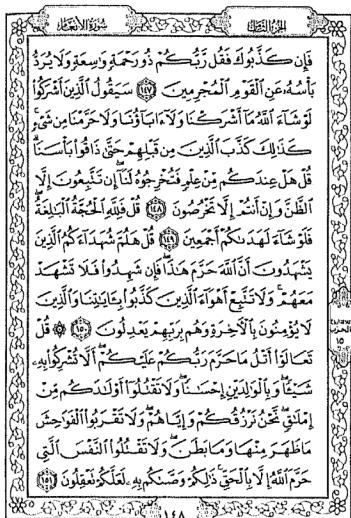 الجزء الثامن
سورة الأنعام
فَإِن كَذَّبُوكَ فَقُل رَّبُّكُمْ ذُو رَحْمَةٍ وَاسِعَةٍ وَلَا يُرَدُّ
بَأْسُهُ عَنِ الْقَوْمِ الْمُجْرِمِينَ ١٤٧ سَيَقُولُ الَّذِينَ أَشْرَكُوا
لَوْ شَاءَ اللَّهُ مَا أَشْرَكْنَا وَلَا ءَابَاؤُنَا وَلَا حَرَّمْنَا مِن شَيْءٍ
كَذَٰلِكَ كَذَّبَ الَّذِينَ مِن قَبْلِهِمْ حَتَّىٰ ذَاقُوا بَأْسَنَا
قُلْ هَلْ عِندَكُم مِّنْ عِلْمٍ فَتُخْرِجُوهُ لَنَا إِن تَتَّبِعُونَ إِلَّا
الظَّنَّ وَإِنْ أَنتُمْ إِلَّا تَخْرُصُونَ ١٤٨ قُلْ فَلِلَّهِ الْحُجَّةُ الْبَالِغَةُ
فَلَوْ شَاءَ لَهَدَىٰكُمْ أَجْمَعِينَ ١٤٩ قُلْ هَلُمَّ شُهَدَاءَكُمُ الَّذِينَ
يَشْهَدُونَ أَنَّ اللَّهَ حَرَّمَ هَٰذَا فَإِن شَهِدُوا فَلَا تَشْهَدْ
مَعَهُمْ وَلَا تَتَّبِعْ أَهْوَاءَ الَّذِينَ كَذَّبُوا بِـَٔايَٰتِنَا وَالَّذِينَ
لَا يُؤْمِنُونَ بِالْءَاخِرَةِ وَهُم بِرَبِّهِمْ يَعْدِلُونَ ١٥٠ ۞ قُلْ
تَعَالَوْا أَتْلُ مَا حَرَّمَ رَبُّكُمْ عَلَيْكُمْ أَلَّا تُشْرِكُوا بِهِ
شَيْـًٔا وَبِالْوَٰلِدَيْنِ إِحْسَٰنًا وَلَا تَقْتُلُوا أَوْلَٰدَكُم مِّنْ
إِمْلَٰقٍ نَّحْنُ نَرْزُقُكُمْ وَإِيَّاهُمْ وَلَا تَقْرَبُوا الْفَوَٰحِشَ
مَا ظَهَرَ مِنْهَا وَمَا بَطَنَ وَلَا تَقْتُلُوا النَّفْسَ الَّتِي
حَرَّمَ اللَّهُ إِلَّا بِالْحَقِّ ذَٰلِكُمْ وَصَّىٰكُم بِهِ لَعَلَّكُمْ تَعْقِلُونَ ١٥١
الحزب
١٥
١٤٨